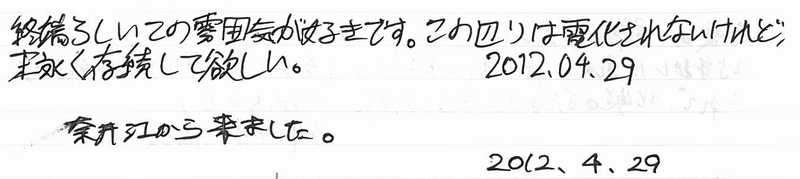 終端らしいこの雰囲気が好きです。この辺りは電化されないけれど、
末永く存続して欲しい。 2012.04.29
奈井江から来ました。
2012、4、29